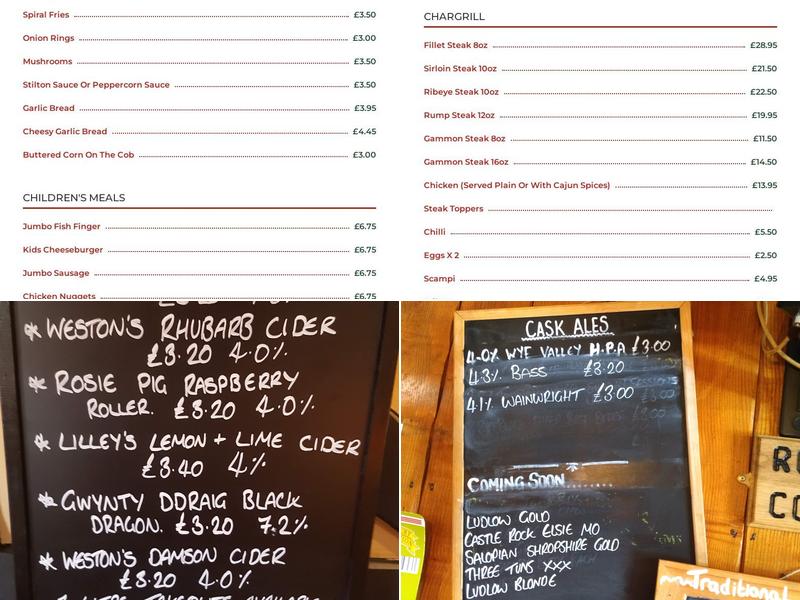 Spiral Fries £3.50
Onion Rings £3.00
Mushrooms £3.50
Stilton Sauce Or Peppercorn Sauce £3.50
Garlic Bread £3.95
Cheesy Garlic Bread £4.45
Buttered Corn On The Cob £3.00
CHILDREN'S MEALS
Jumbo Fish Finger £6.75
Kids Cheeseburger £6.75
Jumbo Sausage £6.75
Chicken Nuggets £6.75
CHARGRILL
Fillet Steak 8oz £28.95
Sirloin Steak 10oz £21.50
Ribeye Steak 10oz £22.50
Rump Steak 12oz £19.95
Gammon Steak 8oz £11.50
Gammon Steak 16oz £14.50
Chicken (Served Plain Or With Cajun Spices) £13.95
Steak Toppers
Chilli £5.50
Eggs X 2 £2.50
Scampi £4.95
* WESTON'S RHUBARB CIDER
£3.20 4.0%
* ROSIE PIG RASPBERRY
ROLLER. £3.20 4.0%
* LILLEY'S LEMON + LIME CIDER
£3.40 4%
* GWYNTY DDRAIG BLACK
DRAGON. £3.20 7.2%
* WESTON'S DAMSON CIDER
£3.20 4.0%
CASK ALES
4.0% WYE VALLEY H.P.A £3.00
4.3% BASS £3.20
4.1% WAINWRIGHT £3.00
COMING SOON.......
LUDLOW GOLD
CASTLE ROCK ELSIE MO
SALOPIAN SHROPSHIRE GOLD
THREE TUNS XXX
LUDLOW BLONDE
Traditional